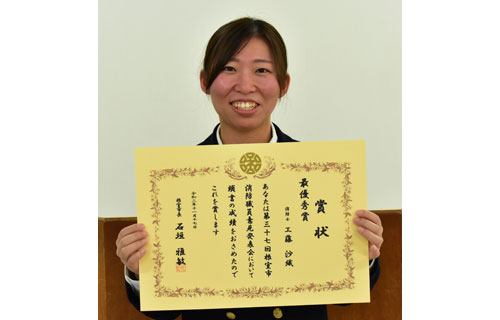 賞状
最優秀賞
消防士 工藤 沙織
あなたは第三十七回根室市
消防職員意見発表会において
頭書の成績をおさめたので
これを賞します
令和三年十一月十七日
根室市長 石垣 雅敏